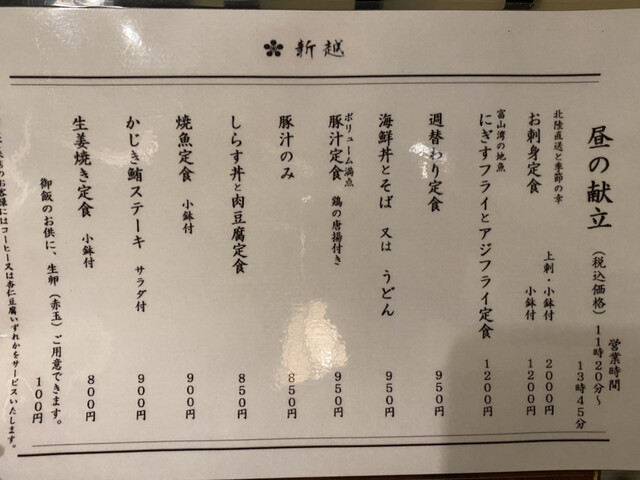 新越
昼の献立（税込価格）
営業時間
11時20分～
13時45分
北陸直送と季節の幸
お刺身定食
上刺・小鉢付 2000円
小鉢付 1200円
富山湾の地魚
にぎすフライとアジフライ定食 1200円
週替わり定食 950円
海鮮丼とそば 又は うどん 950円
ボリューム満点
豚汁定食 鶏の唐揚付き 950円
豚汁のみ 850円
しらす丼と肉豆腐定食 850円
焼魚定食 小鉢付 900円
かじき鮪ステーキ サラダ付 900円
生姜焼き定食 小鉢付 800円
御飯のお供に、生卵（赤玉）ご用意できます。 100円
お客様にはコーヒー又は杏仁豆腐いずれかをサービスいたします。